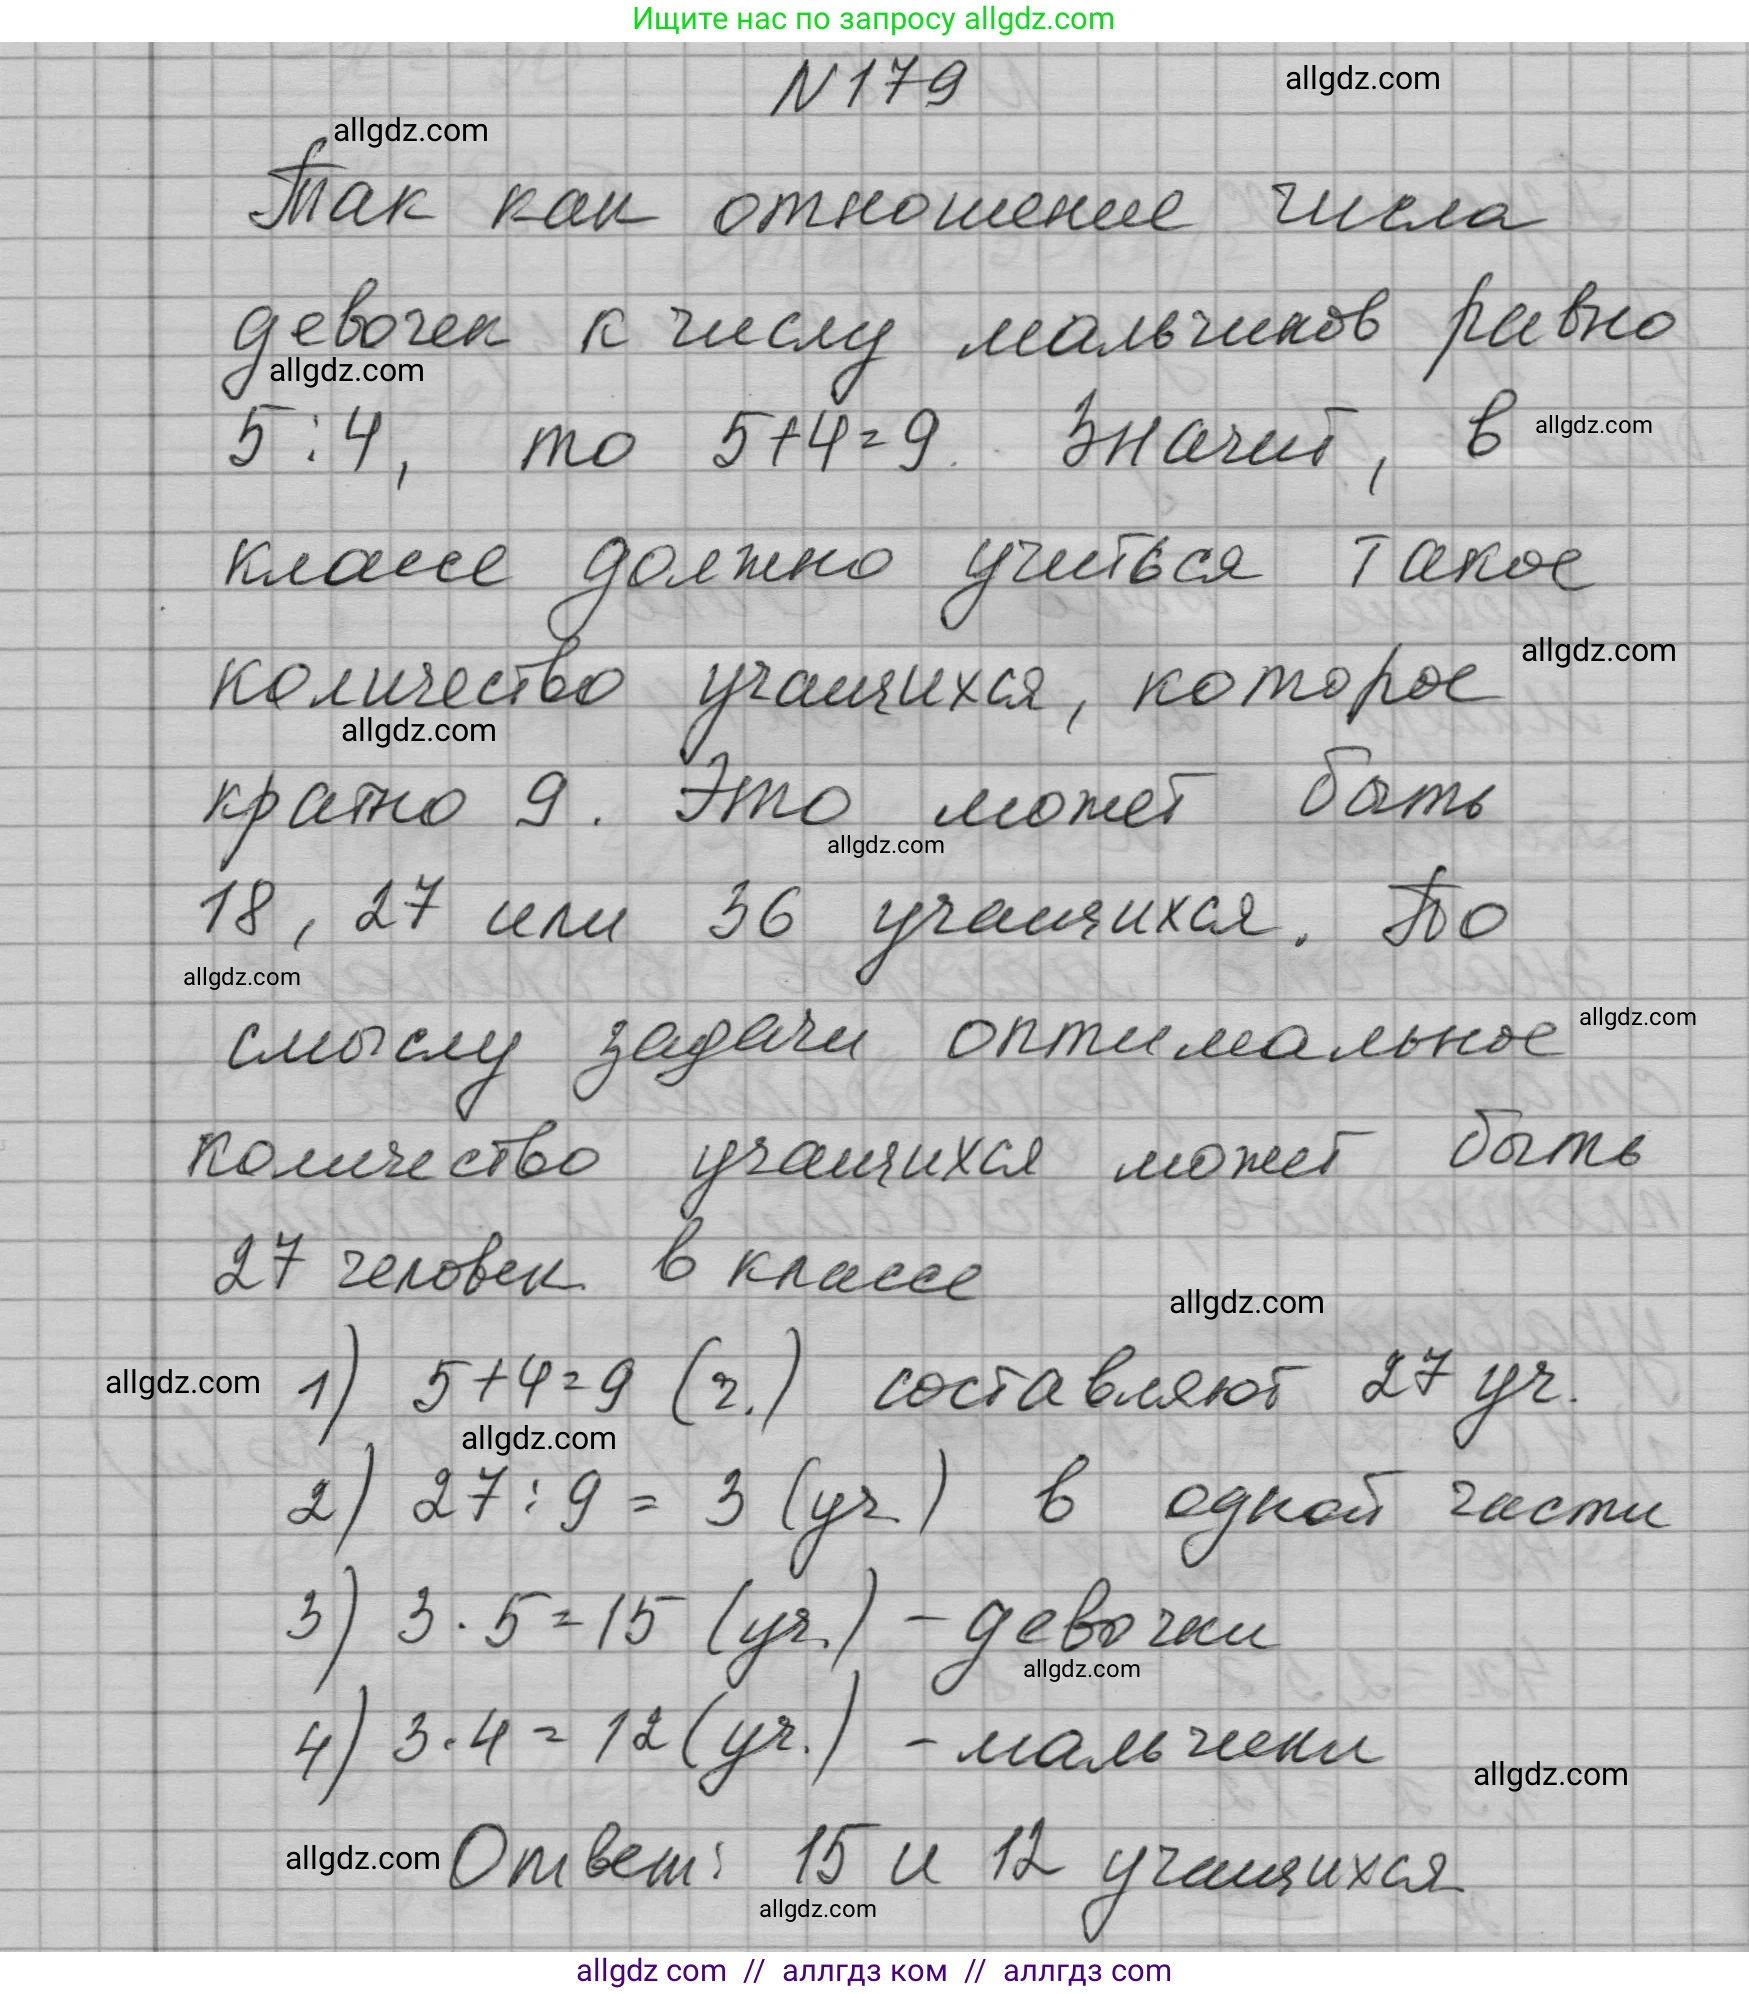 Ищите нас по запросу allgdz.com
N 179
allgdz.com
allgdz.com
Так как отношение числа
девочек к числу мальчиков равно
allgdz.com
5 : 4, то 5+4=9. Значит, в
allgdz.com
классе должно учиться такое
количество учащихся, которое
allgdz.com
allgdz.com
кратно 9. Это может быть
allgdz.com
18, 27 или 36 учащихся. По
allgdz.com
смыслу задачи оптимальное
allgdz.com
количество учащихся может быть
27 человек в классе
allgdz.com
allgdz.com
1) 5+4=9 (ч.) составляют 27 уч.
allgdz.com
2) 27 : 9 = 3 (уч.) в одной части
3) 3 · 5 = 15 (уч.) - девочки
allgdz.com
4) 3 · 4 = 12 (уч.) - мальчики
allgdz.com
allgdz.com
Ответ: 15 и 12 учащихся
allgdz.com
allgdz com // аллгдз ком // аллгдз com